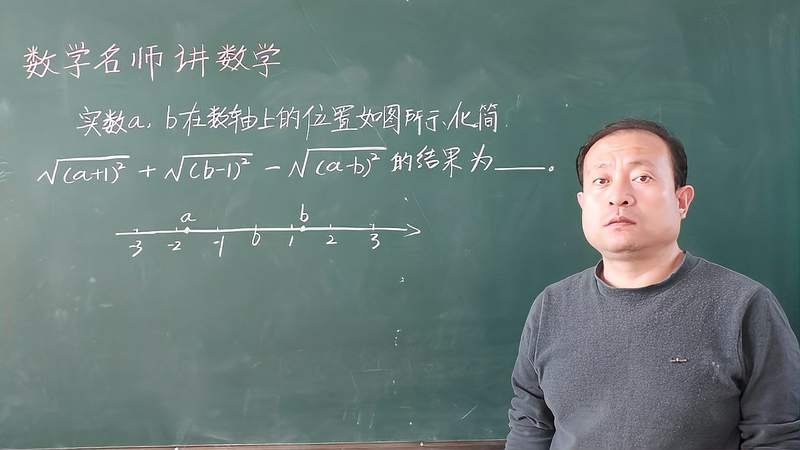 数学名师讲数学
实数a,b在数轴上的位置如图所示,化简
√(a+1)² + √(b-1)² - √(a-b)² 的结果为____。
a b
-3 -2 -1 0 1 2 3